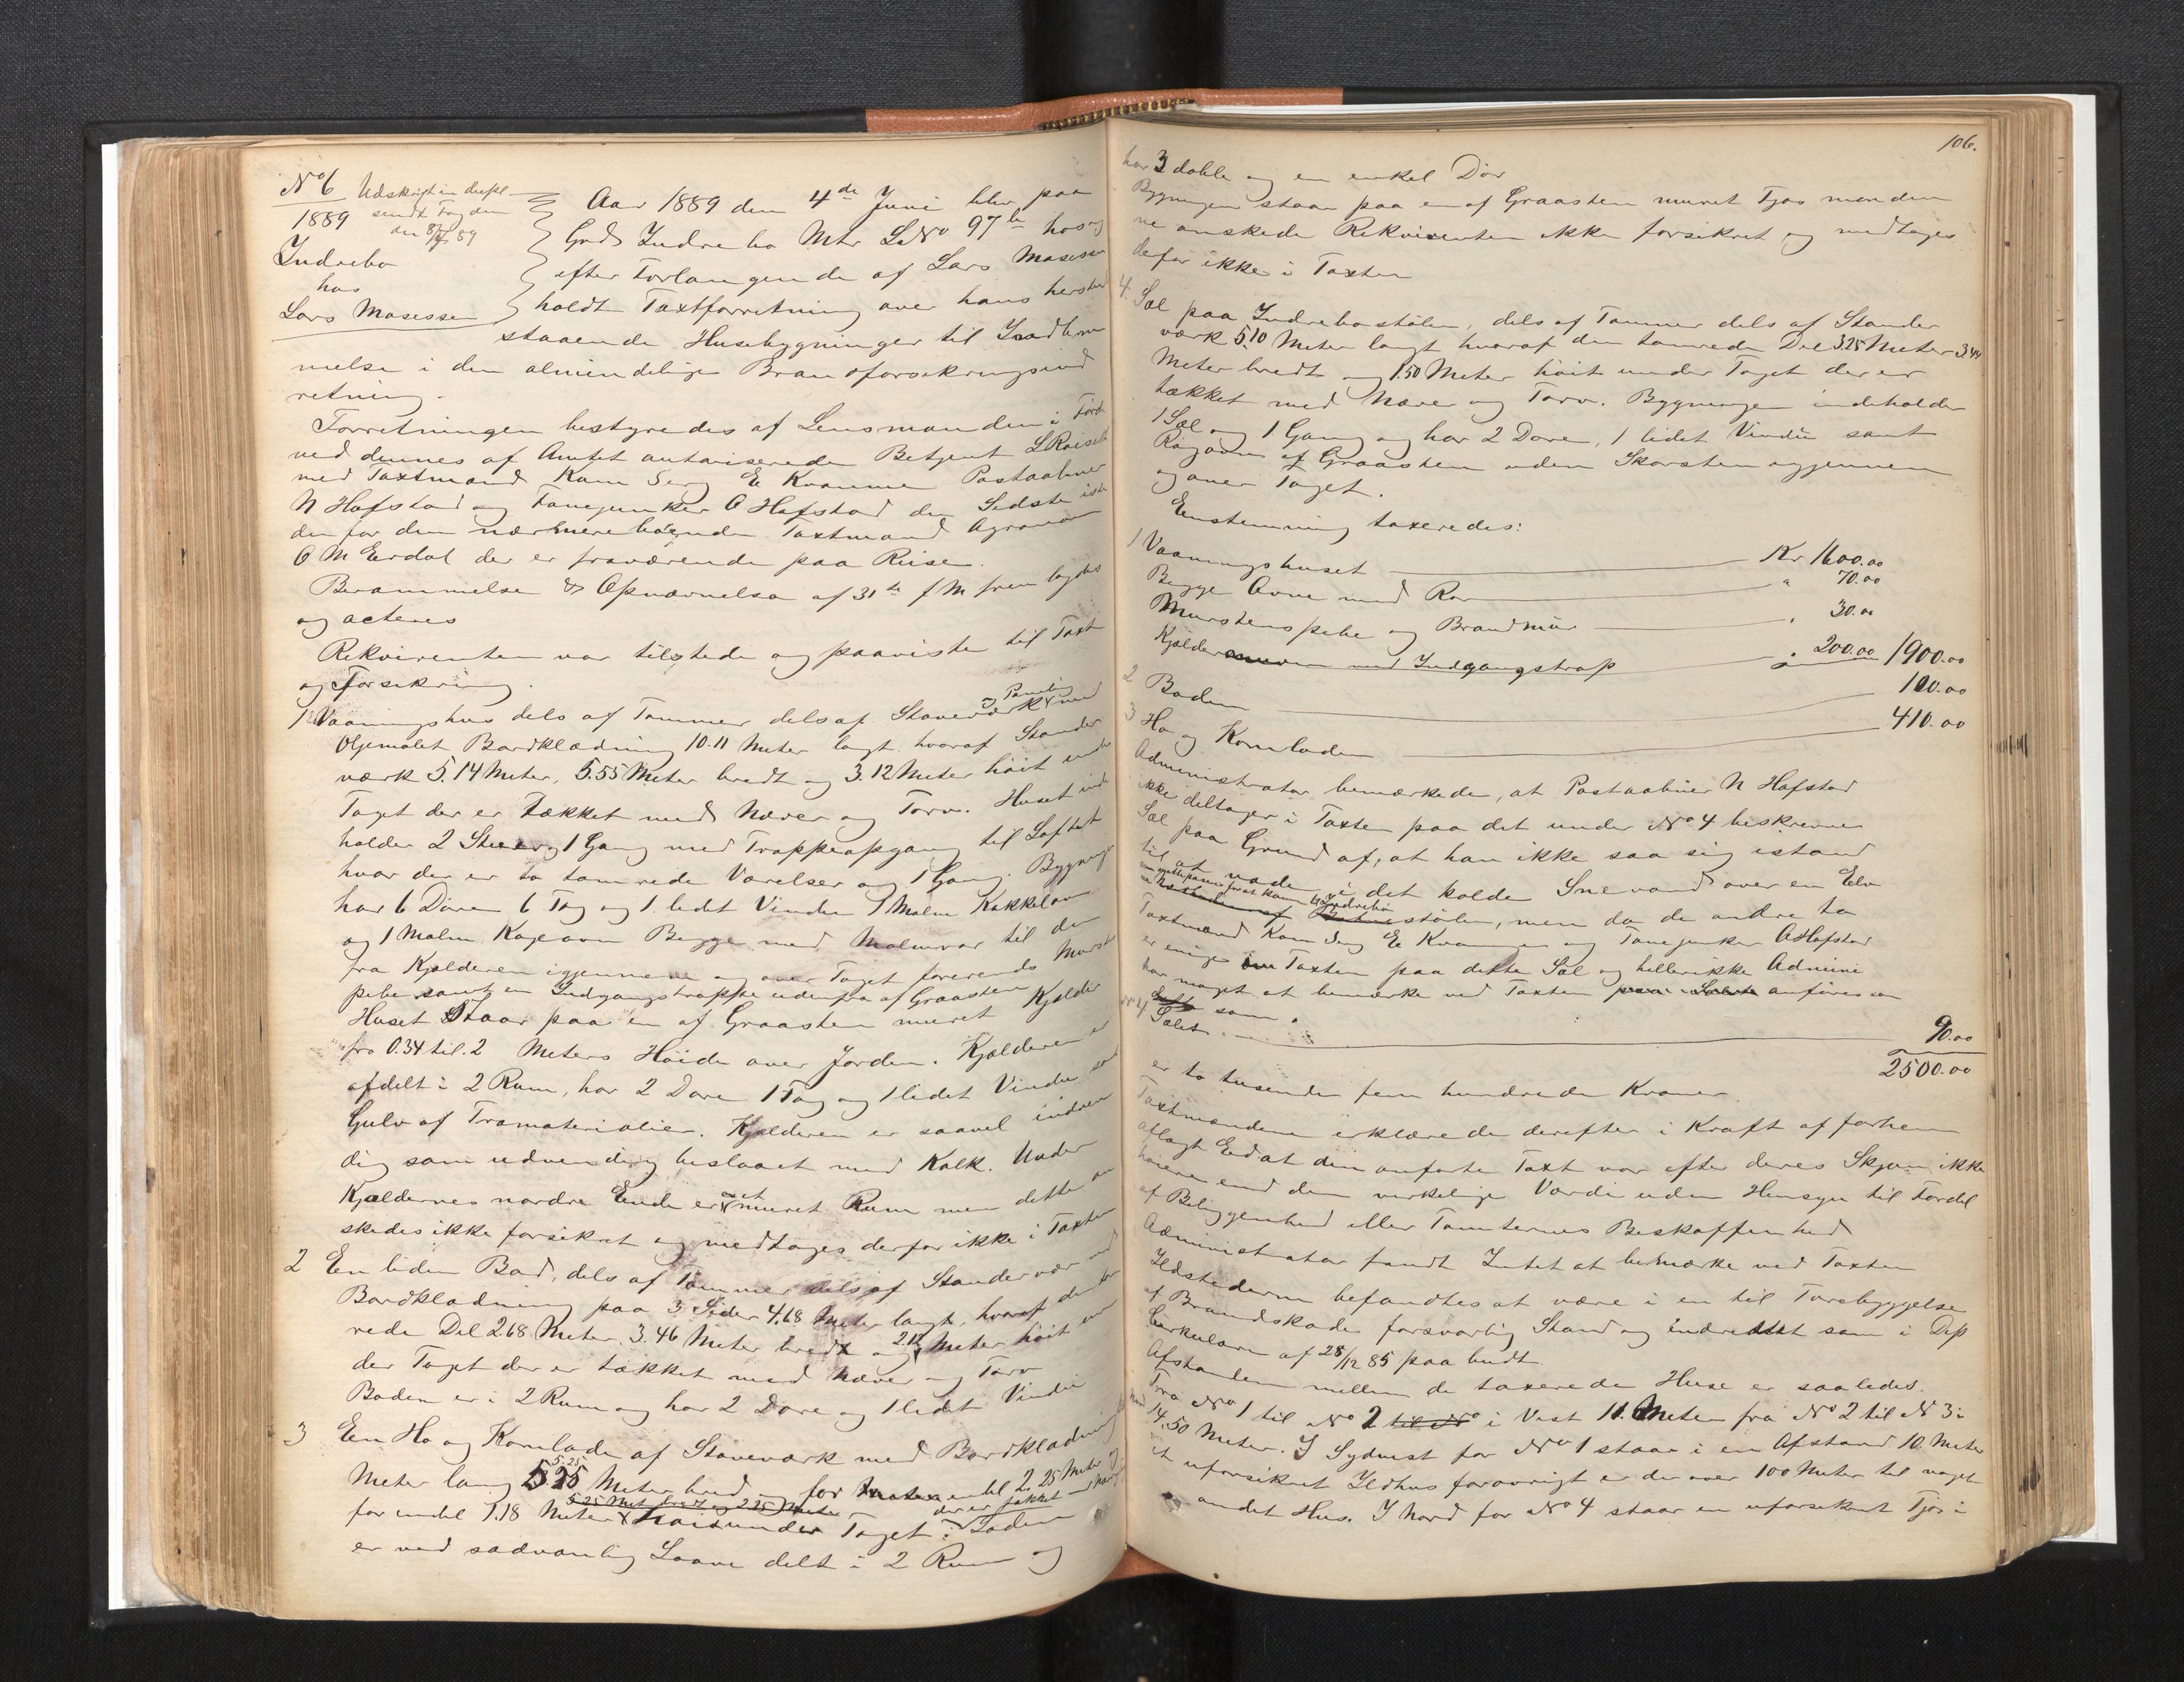 No 6 Udskrift in dupl
1889 sendt Fogden
den 8/7 89
Indrebø
hos
Lars Mosessen
Aar 1889 den 4de Juni blev paa
Grd Indrebø Mtr LNo 97 hos og
efter Forlangende af Lars Mosessen
holdt Taxtforretning over hans hersteds
staaende Husebygninger til Indlem
melse i den almindelige Brandforsikringsind
retning.
Forretningen bestyredes af Lensmanden i Førde
ved dennes af Amtet autoriserede Betjent
med Taxtmænd Kom Serg E Kvamme Postaabner
N Hafstad og Fanejunker O Hafstad den Sidste iste
den for den nærmere boende Taxtmand Agronom
O M Erdal der er fraværende paa Reise.
Berammelse & Opnævnelse af 31te f M fremlagdes
og acteres
Rekvirenten var tilstede og paaviste til Taxt
og Forsikring.
1 Vaaningshus dels af Tømmer dels af Staveværk og Paneling med
Oljemalet Bordklædning 10.11 Meter langt hvoraf Stander
værk 5.14 Meter, 5.55 Meter bredt og 3.12 Meter høit under
Taget der er tækket med Næver og Torv. Huset inde
holder 2 Stuer og 1 Gang med Trappeopgang til Loftet
hvor der er to tømrede Værelser og 1 Gang. Bygningen
har 6 Døre 6 Fag og 1 lidet Vindu 1 Malm Kakkelovn
og 1 Malm Kogeovn Begge med Malmrør til den
fra Kjælderen igjennem og over Taget førerende Murstens
pibe samt en Indgangstrappe udenfra af Graasten
Huset Staar paa en af Graasten muret Kjælder
fra 0.34 til 2 Meters Høide over Jorden. Kjælderen er
afdelt i 2 Rum, har 2 Døre 1 Fag og 1 lidet Vindu samt
Gulv af Træmaterialier. Kjælderen er saavel indven
dig som udvendig beslaaet med Kalk. Under
Kjældernes nordre Ende er et muret Rum men dette øn
skedes ikke forsikret og medtages derfor ikke i Taxten
2 En liden Bod, dels af Tømmer dels af Stander vær med
Bordklædning paa 3 Sider 4.68 Meter langt, hvoraf den tøm
rede Del 2.68 Meter, 3.46 Meter bredt og 2.12 Meter høit un
der Taget der er tækket med Næver og Torv
Boden er i 2 Rum og har 2 Døre og 1 lidet Vindu
3 En Hø og Kornlade af Staveværk med Bordklædning
Meter lang 5.25 Meter bred og for endel 2.25 Meter og
for endel 1.18 Meter høit under Taget der er tækket med
Laden
er ved sædvanlig Laave delt i 2 Rum og
106.
har 3 doble og en enkel Dør
Bygningen staar paa en af Graasten muret Fjøs men den
ne ønskede Rekvirenten ikke forsikret og medtages
defor ikke i Taxten
4. Sæl paa Indrebøstølen, dels af Tømmer dels af Stander
værk 5.10 Meter langt hvoraf den tømrede Del 3.25 Meter 3.44
Meter bredt og 1.50 Meter høit under Taget der er
tækket med Næver og Torv. Bygningen indeholder
1 Sæl og 1 Gang og har 2 Døre, 1 lidet Vindu samt
Røgovn af Graasten uden Skorsten igjennem
og over Taget.
Eenstemmig taxeredes:
1 Vaaningshuset Kr 1600.00
Begge Ovne med Rør " 70.00
Murstenspibe og Brandmur " 30.00
Kjælderen med Indgangstrap " 200.00 1900.00
2 Boden 100.00
3 Hø og Kornladen 410.00
Administrator bemærkede, at Postaabner N Hafstad
ikke deltager i Taxten paa det under No 4 beskrevne
Sæl paa Grund af, at han ikke saa sig istand
til at vade i det kolde Snevand over en Elv
for at komme til Indrebø
stølen, men da de andre to
Taxtmænd Kom Serg E Kvamme og Fanejunker O Hafstad
er enige om Taxten paa dette Sæl og heller ikke Admini
har noget at bemærke ved Taxten anføres som
som.
No 4 Sælet 90.00
2500.00
er to tusende fem hundrede Kroner.
Taxtmændene erklærede derefter i Kraft af forhen
aflagt Eed at den anførte Taxt var efter deres Skjøn ikke
høiere end den virkelige Værdi uden Hensyn til Fordel
af Beliggenhed eller Tomternes Beskaffenhed
Administrator fandt Intet at bemærke ved Taxten
Ildstederne befandtes at være i en til Forebyggelse
af Brandskade forsvarlig Stand og indrettet som i Dep
Cirkulære af 28/12 85 paabudt
Afstanden mellem de taxerede Huse er saaledes.
Fra No 1 til No 2 til No i Vest 11.6 Meter fra No 2 til N 3 i
14.50 Meter. I Sydvest for No 1 staar i en Afstand 10 Meter
et uforsikret Ildhus forøvrigt er der over 100 Meter til noget
andet Hus. I Nord for No 4 staar en uforsikret Fjøs i